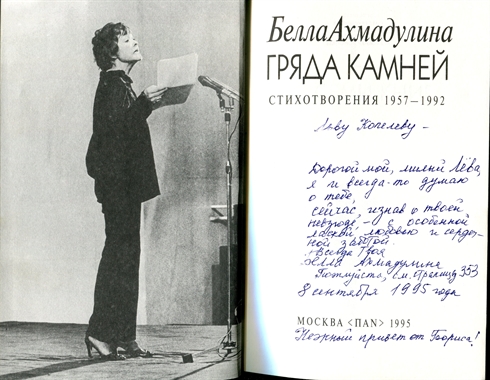 Белла Ахмадулина
ГРЯДА КАМНЕЙ
СТИХОТВОРЕНИЯ 1957—1992
Льву Копелеву —
Дорогой мой, милый Лёва,
я и всегда-то думаю
о тебе,
сейчас, узнав о твоей
невзгоде — с особенной
лаской, любовью и сердеч-
ной заботой.
Всегда Твоя
Белла Ахмадулина
Пожалуйста, см. страницу 353
8 сентября 1995 года
МОСКВА <ПАN> 1995
Нежный привет от Бориса!